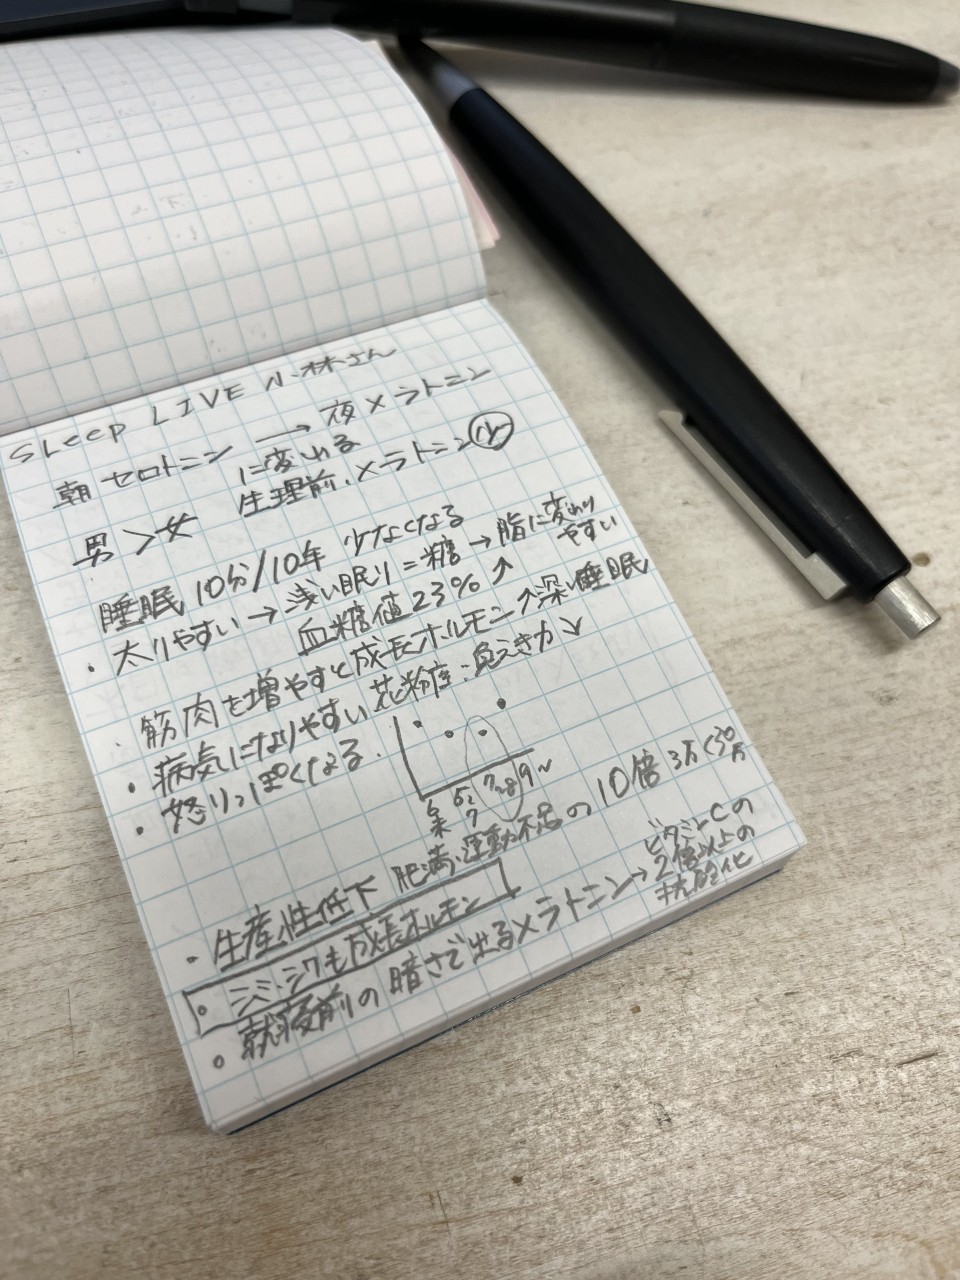 Sleep LIVE 小林さん
朝 セロトニン → 夜 メラトニン
に変わる
生理前、メラトニン 少
男 > 女
睡眠 10分/10年 少なくなる
・太りやすい → 浅い眠り = 糖 → 脂に変わりやすい
血糖値 23% ↑
・筋肉を増やすと成長ホルモン↑深い睡眠
・病気になりやすい 花粉症:免えき力↘
・怒りっぽくなる.
6未 6~7 7~8 9~
・生産性低下 肥満、運動不足の10倍 3万<30万
・シミ、シワも成長ホルモン
・就寝前の暗さで出るメラトニン→ビタミンCの
2倍以上の
抗酸化